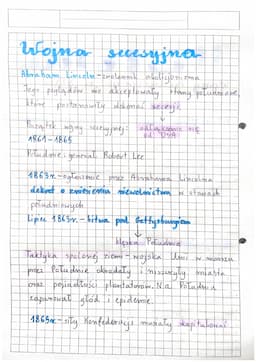 Wojna secesyjna
Abraham Lincoln - zwolennik abolicjonizmu
Jego poglądów nie akceptowały stany południowe,
które postanowiły dokonać secesji
↓
Początek wojny secesyjnej: odłączenie się
od USA
1861-1865
Południe: generał Robert Lee
1863r. - ogłoszenie przez Abrahama Lincolna
dekret o zniesieniu niewolnictwa w stanach
południowych
Lipiec 1863r. - bitwa pod Gettysburgiem
↓
klęska Południa
Taktyka spalonej ziemi - wojska Unii w marszu
przez Południe okradały i niszczyły miasta
oraz posiadłości plantatorów. Na Południu
zapanował głód i epidemie.
1865r. - siły Konfederacji musiały skapitulować